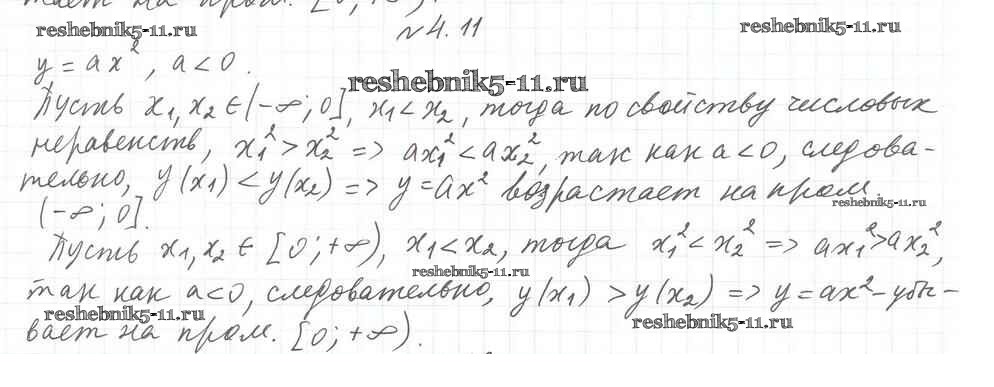 тает на пром. [0; +∞).
reshebnik5-11.ru № 4.11 reshebnik5-11.ru
y = ax², a < 0.
reshebnik5-11.ru
Пусть x₁, x₂ ∈ (-∞; 0], x₁ < x₂, тогда по свойству числовых
неравенств, x₁² > x₂² => ax₁² < ax₂², так как a < 0, следова-
тельно, y(x₁) < y(x₂) => y = ax² возрастает на пром.
reshebnik5-11.ru
(-∞; 0].
Пусть x₁, x₂ ∈ [0; +∞), x₁ < x₂, тогда x₁² < x₂² => ax₁² > ax₂²,
reshebnik5-11.ru
так как a < 0, следовательно, y(x₁) > y(x₂) => y = ax² - убы-
reshebnik5-11.ru reshebnik5-11.ru
вает на пром. [0; +∞).